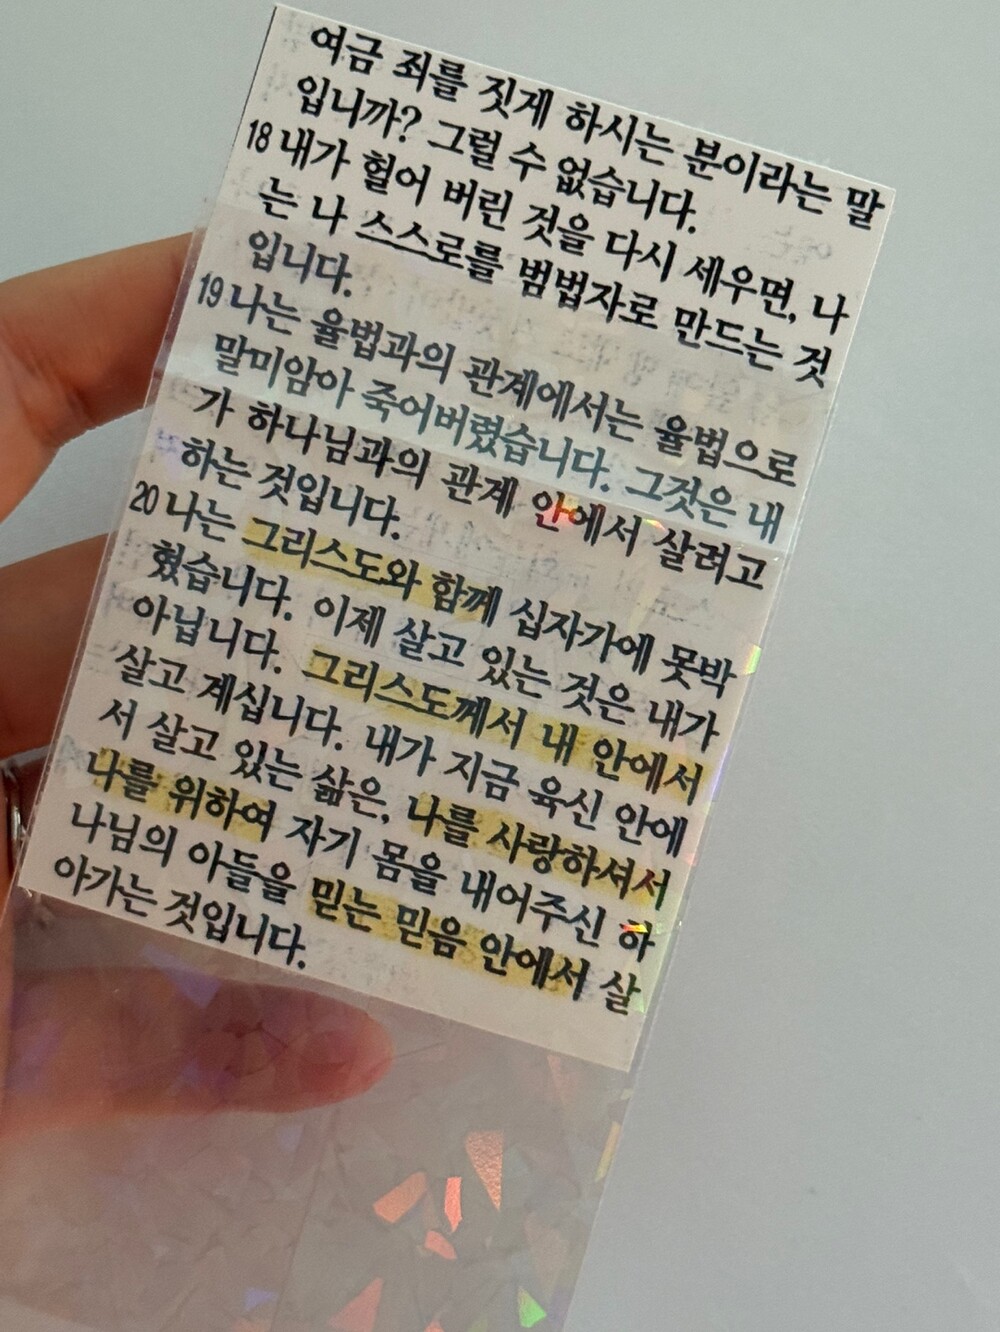 여금 죄를 짓게 하시는 분이라는 말
입니까? 그럴 수 없습니다.
18 내가 헐어 버린 것을 다시 세우면, 나
는 나 스스로를 범법자로 만드는 것
입니다.
19 나는 율법과의 관계에서는 율법으로
말미암아 죽어버렸습니다. 그것은 내
가 하나님과의 관계 안에서 살려고
하는 것입니다.
20 나는 그리스도와 함께 십자가에 못박
혔습니다. 이제 살고 있는 것은 내가
아닙니다. 그리스도께서 내 안에서
살고 계십니다. 내가 지금 육신 안에
서 살고 있는 삶은, 나를 사랑하셔서
나를 위하여 자기 몸을 내어주신 하
나님의 아들을 믿는 믿음 안에서 살
아가는 것입니다.